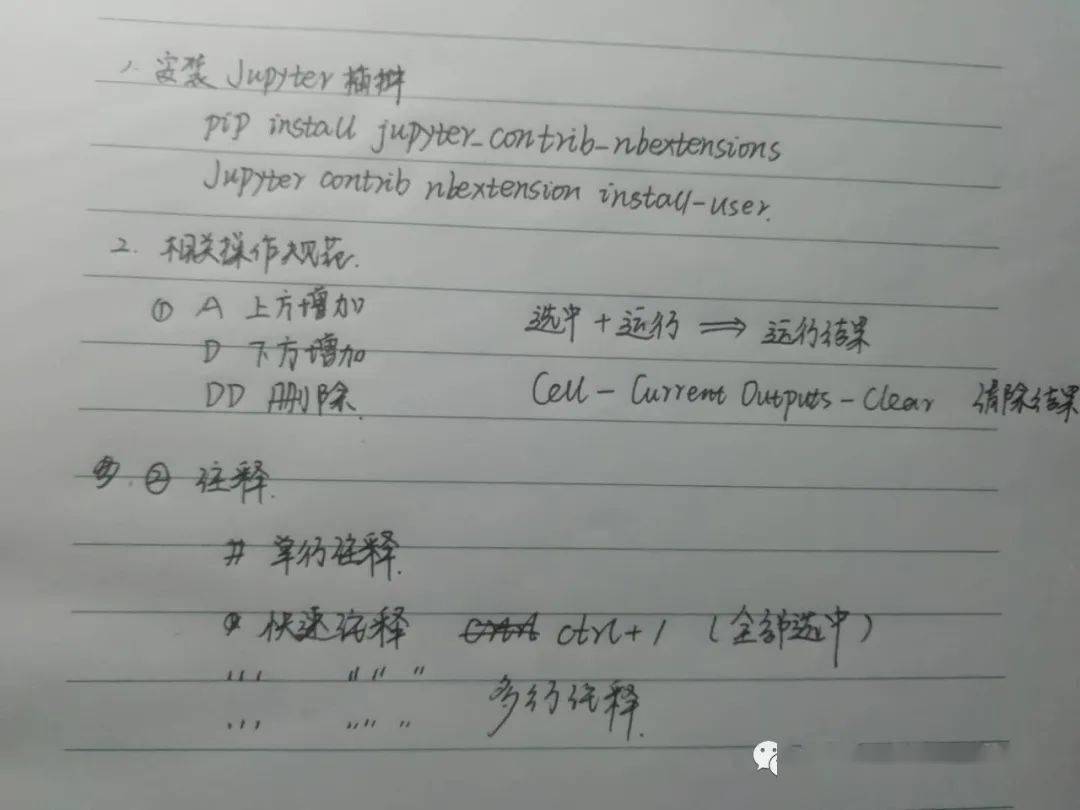 1. 安装 Jupyter 插拼
pip install jupyter_contrib_nbextensions
Jupyter contrib nbextension install-user.
2. 相关操作规范.
① A 上方增加 选中 + 运行 ⟹ 运行结果
D 下方增加
DD 删除. Cell - Current Outputs - Clear 清除结果
② 注释.
# 单行注释.
快速注释 ctrl + / (全部选中)
''' """
''' """ 多行注释.